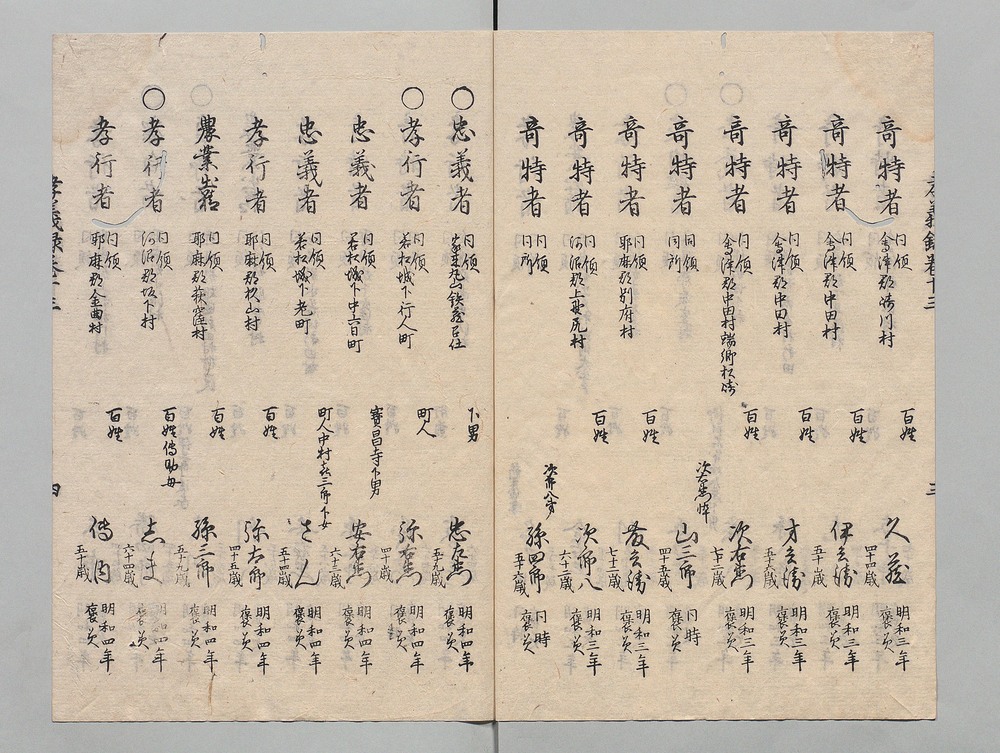 孝義録巻十三
三
奇特者 同領 会津郡 川村 百姓 久蔵 四十四歳 明和三年 褒美
奇特者 同領 会津郡中田村 百姓 伊之勝 五十歳 明和三年 褒美
奇特者 同領 会津郡中田村 百姓 才之勝 五十六歳 明和三年 褒美
奇特者 同領 会津郡中田村端郷松 百姓 次右衛門 七十二歳 明和三年 褒美
奇特者 同領 同所 次右衛門悴 山三郎 四十五歳 同時 褒美
奇特者 同領 耶麻郡別府村 百姓 七十二歳 明和三年 褒美
奇特者 同領 河沼郡上 村 百姓 次郎八 六十二歳 明和三年 褒美
奇特者 同領 同所 次郎八 孫四郎 五十六歳 同時 褒美
○忠義者 同領 下男 忠左衛門 五十九歳 明和四年 褒美
○孝行者 同領 若松城下行人町 町人 弥右衛門 四十歳 明和四年 褒美
忠義者 同領 若松城下中六日町 寶昌寺下男 安右衛門 六十三歳 明和四年 褒美
忠義者 同領 若松城下老町 町人中村喜三郎下女 さん 五十四歳 明和四年 褒美
孝行者 同領 耶麻郡 山村 百姓 弥太郎 四十五歳 明和四年 褒美
農業出精 同領 耶麻郡荻窪村 百姓 孫三郎 五十九歳 明和四年 褒美
○孝行者 同領 河沼郡坂下村 百姓傳助母 六十四歳 明和四年 褒美
孝行者 同領 耶麻郡金曲村 百姓 傳内 五十歳 明和四年 褒美
孝義録巻十三
四